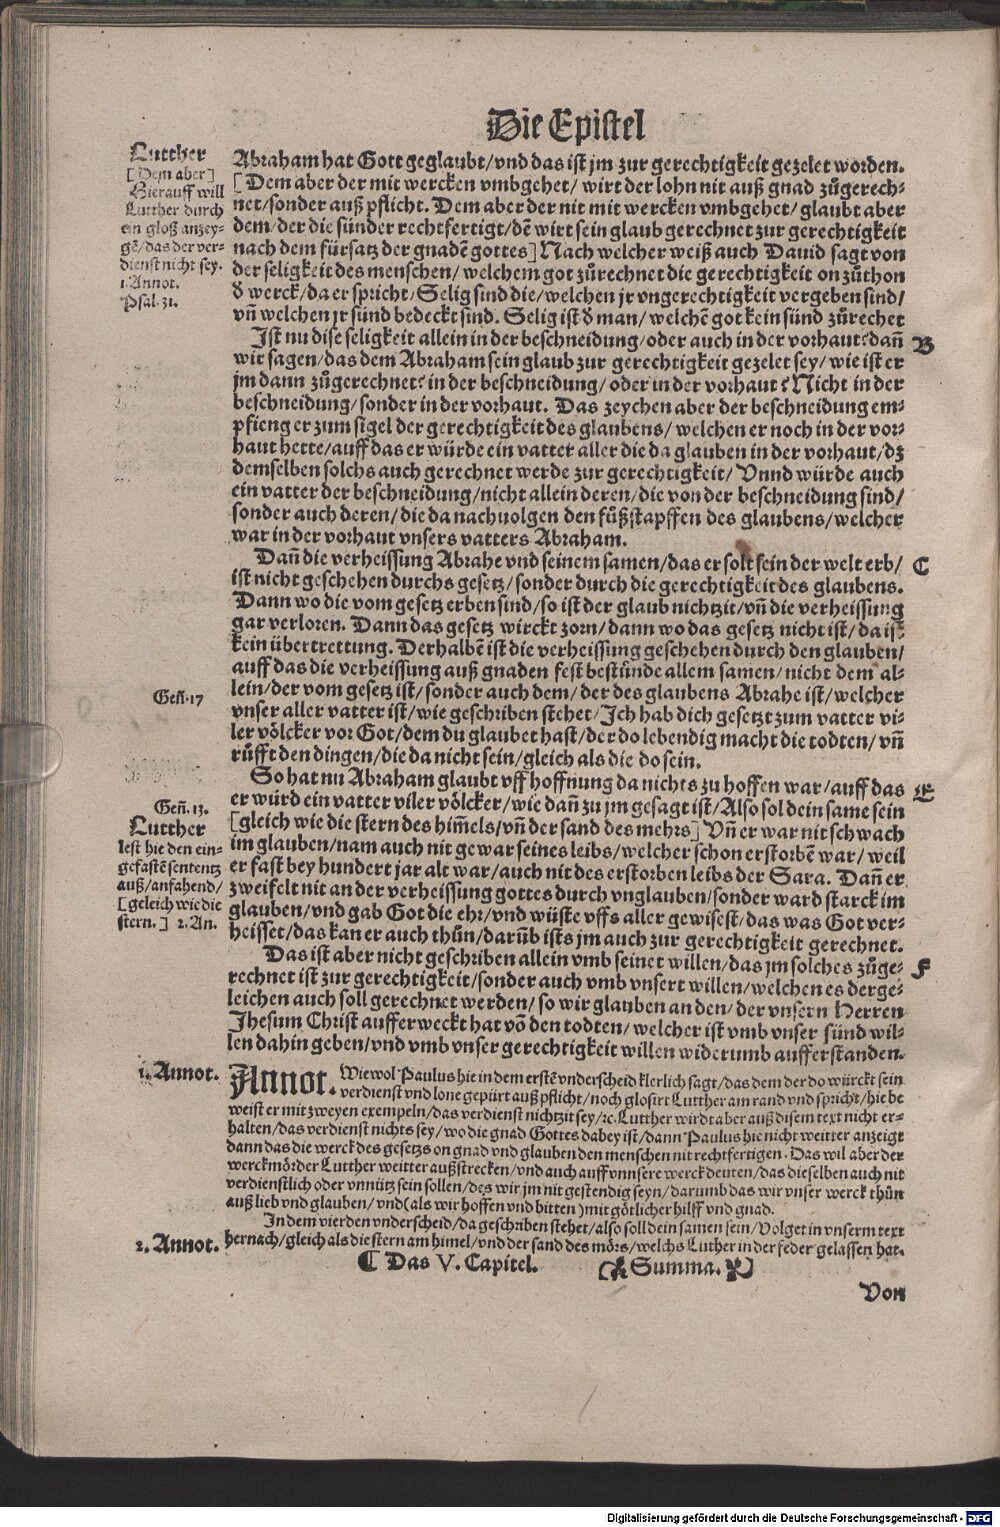 Die Epistel
Lutther
[Dem aber]
Hierauff will
Lutther durch
ein gloß anzey-
gẽ/das der ver-
dienst nicht sey.
1. Annot.
Psal. 31.
Abraham hat Gott geglaubt/vnd das ist jm zur gerechtigkeit gezelet worden.
[Dem aber der mit wercken vmbgehet/ wirt der lohn nit auß gnad zůgerech-
net/sonder auß pflicht. Dem aber der nit mit wercken vmbgehet/ glaubt aber
dem/der die sünder rechtfertigt/dẽ wirt sein glaub gerechnet zur gerechtigkeit
nach dem fürsatz der gnadẽ gottes] Nach welcher weiß auch Dauid sagt von
der seligkeit des menschen/ welchem got zůrechnet die gerechtigkeit on zůthon
d̕ werck/da er spricht/Selig sind die/welchen jr vngerechtigkeit vergeben sind/
vñ welchen jr sünd bedeckt sind. Selig ist d̕ man/ welchẽ got kein sünd zůrechet
Ist nu dise seligkeit allein in der beschneidung/oder auch in der vorhaut? dañ
B
wir sagen/das dem Abraham sein glaub zur gerechtigkeit gezelet sey/ wie ist er
jm dann zůgerechnet? in der beschneidung/ oder in der vorhaut? Nicht in der
beschneidung/sonder in der vorhaut. Das zeychen aber der beschneidung em-
pfieng er zum sigel der gerechtigkeit des glaubens/ welchen er noch in der vor-
haut hette/auff das er würde ein vatter aller die da glauben in der vorhaut/dz
demselben solchs auch gerechnet werde zur gerechtigkeit/ Vnnd würde auch
ein vatter der beschneidung/nicht allein deren/die von der beschneidung sind/
sonder auch deren/die da nachuolgen den fůßstapffen des glaubens/welcher
war in der vorhaut vnsers vatters Abraham.
Dañ die verheissung Abrahe vnd seinem samen/das er solt sein der welt erb/
C
ist nicht geschehen durchs gesetz/sonder durch die gerechtigkeit des glaubens.
Dann wo die vom gesetz erben sind/so ist der glaub nichtzit/vñ die verheissung
gar verloren. Dann das gesetz wirckt zorn/dann wo das gesetz nicht ist/da ist
kein übertrettung. Derhalbẽ ist die verheissung geschehen durch den glauben/
auff das die verheissung auß gnaden fest bestünde allem samen/nicht dem al-
lein/der vom gesetz ist/sonder auch dem/der des glaubens Abrahe ist/welcher
Geñ. 17
vnser aller vatter ist/wie geschriben stehet/Ich hab dich gesetzt zum vatter vi-
ler völcker vor Got/dem du glaubet hast/der do lebendig macht die todten/vñ
růfft den dingen/die da nicht sein/gleich als die do sein.
So hat nu Abraham glaubt vff hoffnung da nichts zu hoffen war/auff das
E
er würd ein vatter viler völcker/wie dañ zu jm gesagt ist/Also sol dein same sein
Geñ. 13.
Lutther
lest hie den ein-
gefastẽ sententz
auß/anfahend/
[geleich wie die
stern.] 2. An.
[gleich wie die stern des him̃els/vñ der sand des mehrs] Vñ er war nit schwach
im glauben/nam auch nit gewar seines leibs/welcher schon erstorbẽ war/ weil
er fast bey hundert jar alt war/auch nit des erstorben leibs der Sara. Dañ er
zweifelt nit an der verheissung gottes durch vnglauben/sonder ward starck im
glauben/vnd gab Got die ehr/vnd wüste vffs aller gewisest/das was Got ver-
heisset/das kan er auch thůn/darũb ists jm auch zur gerechtigkeit gerechnet.
Das ist aber nicht geschriben allein vmb seinet willen/das jm solches zůge-
F
rechnet ist zur gerechtigkeit/sonder auch vmb vnsert willen/welchen es derge-
leichen auch soll gerechnet werden/ so wir glauben an den/ der vnsern Herren
Jhesum Christ aufferweckt hat võ den todten/ welcher ist vmb vnser sünd wil-
len dahin geben/vnd vmb vnser gerechtigkeit willen widerumb aufferstanden.
1. Annot.
Annot. Wiewol Paulus hie in dem erstẽ vnderscheid klerlich sagt/das dem der do würckt sein
verdienst vnd lone gepürt auß pflicht/noch glosirt Lutther am rand vnd spricht/hie be
weist er mit zweyen exempeln/das verdienst nichtzit sey/ꝛc. Lutther wirdt aber auß disem text nicht er-
halten/das verdienst nichts sey/wo die gnad Gottes dabey ist/dann Paulus hie nicht weitter anzeigt
dann das die werck des gesetzs on gnad vnd glauben den menschen nit rechtfertigen. Das wil aber der
werckmörder Lutther weitter außstrecken/vnd auch auff vnnsere werck deuten/das dieselben auch nit
verdienstlich oder vnnütz sein sollen/des wir jm nit gestendig seyn/darumb das wir vnser werck thůn
auß lieb vnd glauben/vnd(als wir hoffen vnd bitten)mit götlicher hilff vnd gnad.
In dem vierden vnderscheid/da geschriben stehet/also soll dein samen sein/Volget in vnserm text
2. Annot.
hernach/gleich als die stern am himel/vnd der sand des mörs/welchs Luther in der feder gelassen hat.
Das V. Capitel. Summa.
Von
Digitalisierung gefördert durch die Deutsche Forschungsgemeinschaft - DFG